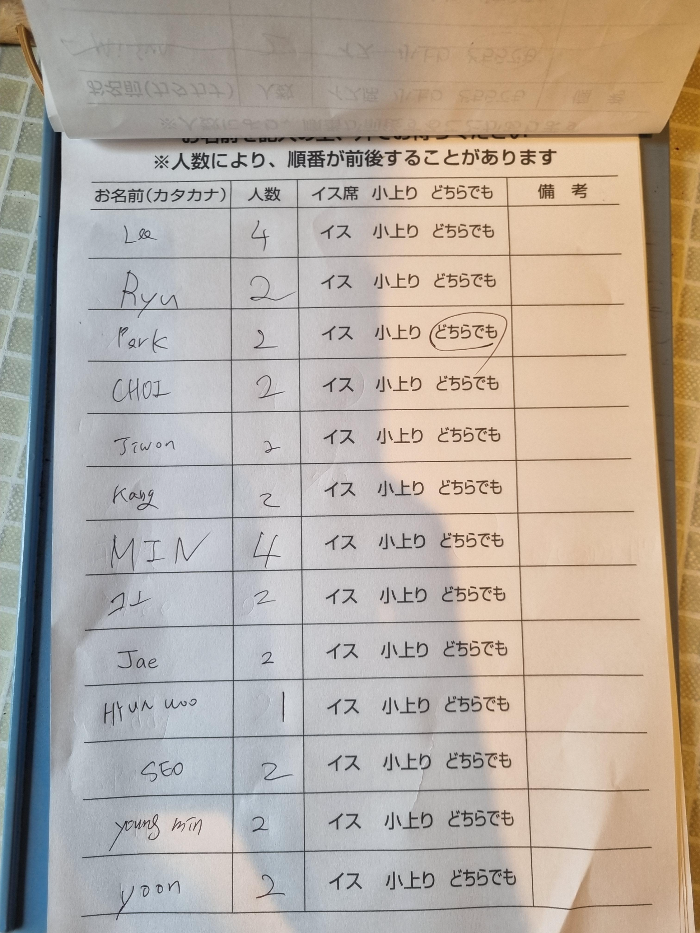 ※人数により、順番が前後することがあります
お名前(カタカナ) 人数 イス席 小上り どちらでも 備 考
Lee 4 イス 小上り どちらでも
Ryu 2 イス 小上り どちらでも
Park 2 イス 小上り どちらでも
CHOI 2 イス 小上り どちらでも
Jiwon 2 イス 小上り どちらでも
Kang 2 イス 小上り どちらでも
MIN 4 イス 小上り どちらでも
2 イス 小上り どちらでも
Jae 2 イス 小上り どちらでも
Hyun woo 1 イス 小上り どちらでも
SEO 2 イス 小上り どちらでも
young min 2 イス 小上り どちらでも
yoon 2 イス 小上り どちらでも